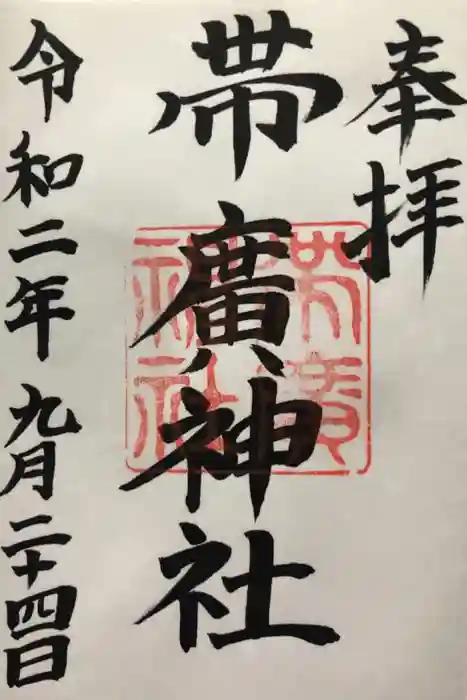 奉拝
帯廣神社
帯廣
神社
令和二年九月二十四日